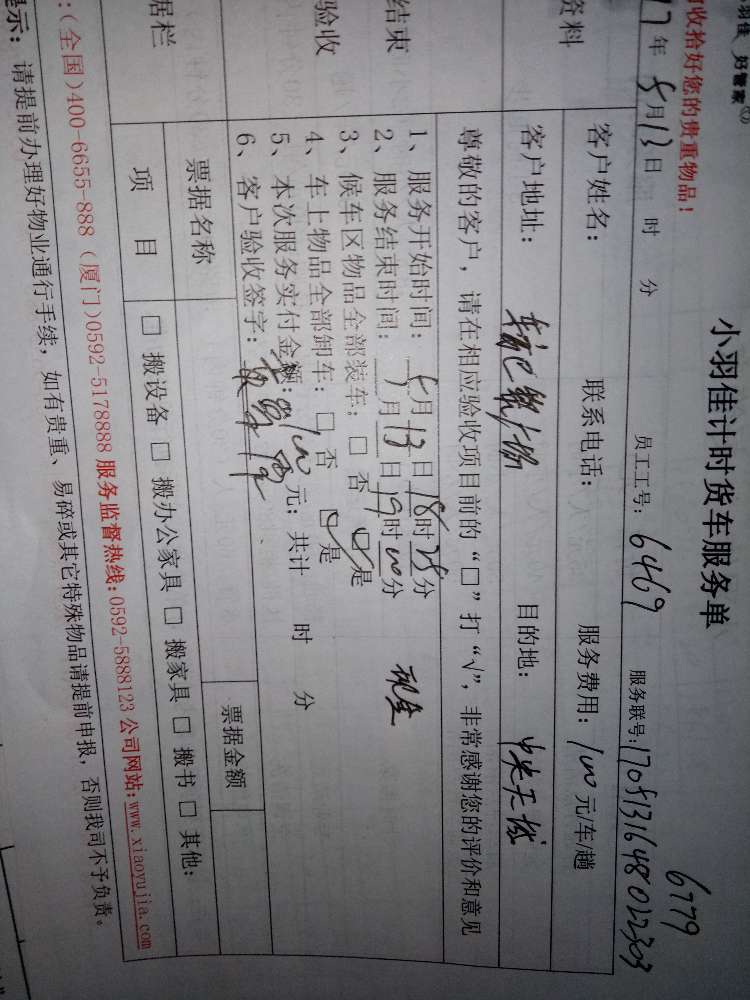 羽佳 好管家
收拾好您的贵重物品！
小羽佳计时货车服务单
6779
17年8月13日 时 分 员工工号：6469 服务联号：170813164802303
资料 客户姓名： 联系电话： 服务费用：100元/车/趟
客户地址： 目的地：中央天城
尊敬的客户，请在相应验收项目前的“□”打“√”，非常感谢您的评价和意见
结束
验收
1、服务开始时间：8月13日18时25分
2、服务结束时间：月13日19时00分 现金
3、候车区物品全部装车：□否 ☑是
4、车上物品全部卸车：□否 ☑是
5、本次服务实付金额：100元；共计 时 分
6、客户验收签字：
据栏 票据名称 票据金额
项 目 □ 搬设备 □ 搬办公家具 □ 搬家具 □ 搬书 □ 其他：
：(全国)400-6655-888（厦门)0592-5178888 服务监督热线:0592-5888123 公司网站:www.xiaoyujia.com
提示：请提前办理好物业通行手续，如有贵重、易碎或其它特殊物品请提前申报，否则我司不予负责。